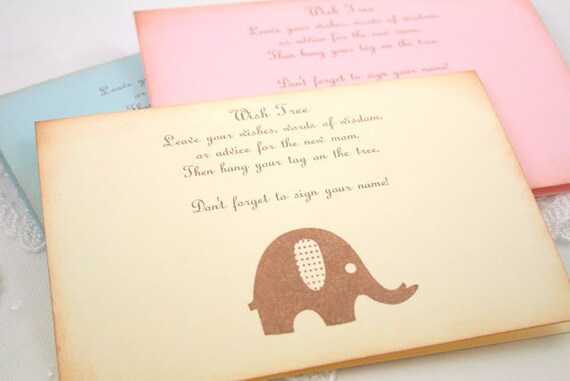 Wish Tree
Leave your wishes, words of wisdom,
or advice for the new mom.
Then hang your tag on the tree.
Don't forget to sign your name!
Wish Tree
Leave your wishes, words of wisdom,
or advice for the new mom.
Then hang your tag on the tree.
Don't forget to sign your name!
Leave your